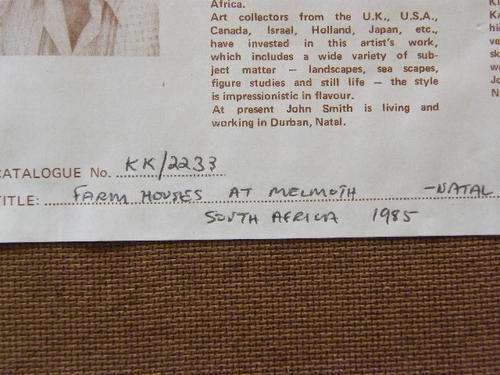 Africa.
Art collectors from the U.K., U.S.A.,
Canada, Israel, Holland, Japan, etc.,
have invested in this artist's work,
which includes a wide variety of sub-
ject matter — landscapes, sea scapes,
figure studies and still life — the style
is impressionistic in flavour.
At present John Smith is living and
working in Durban, Natal.
CATALOGUE No. KK/2233
TITLE: FARM HOUSES AT MELMOTH -NATAL
SOUTH AFRICA 1985